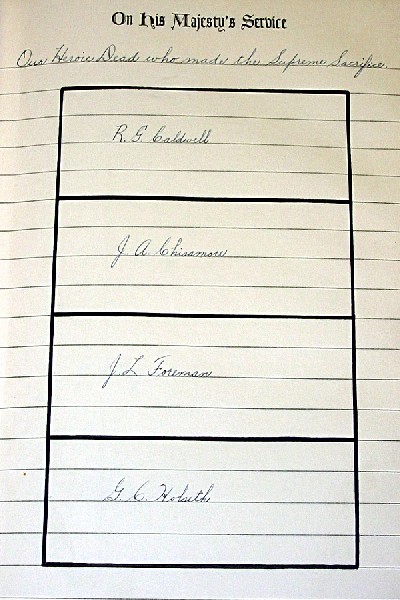 On His Majesty's Service
Our Heroic Dead who made the Supreme Sacrifice.
R. G. Caldwell
J. A. Chissmore
J. L. Foreman
G. C. Holseth